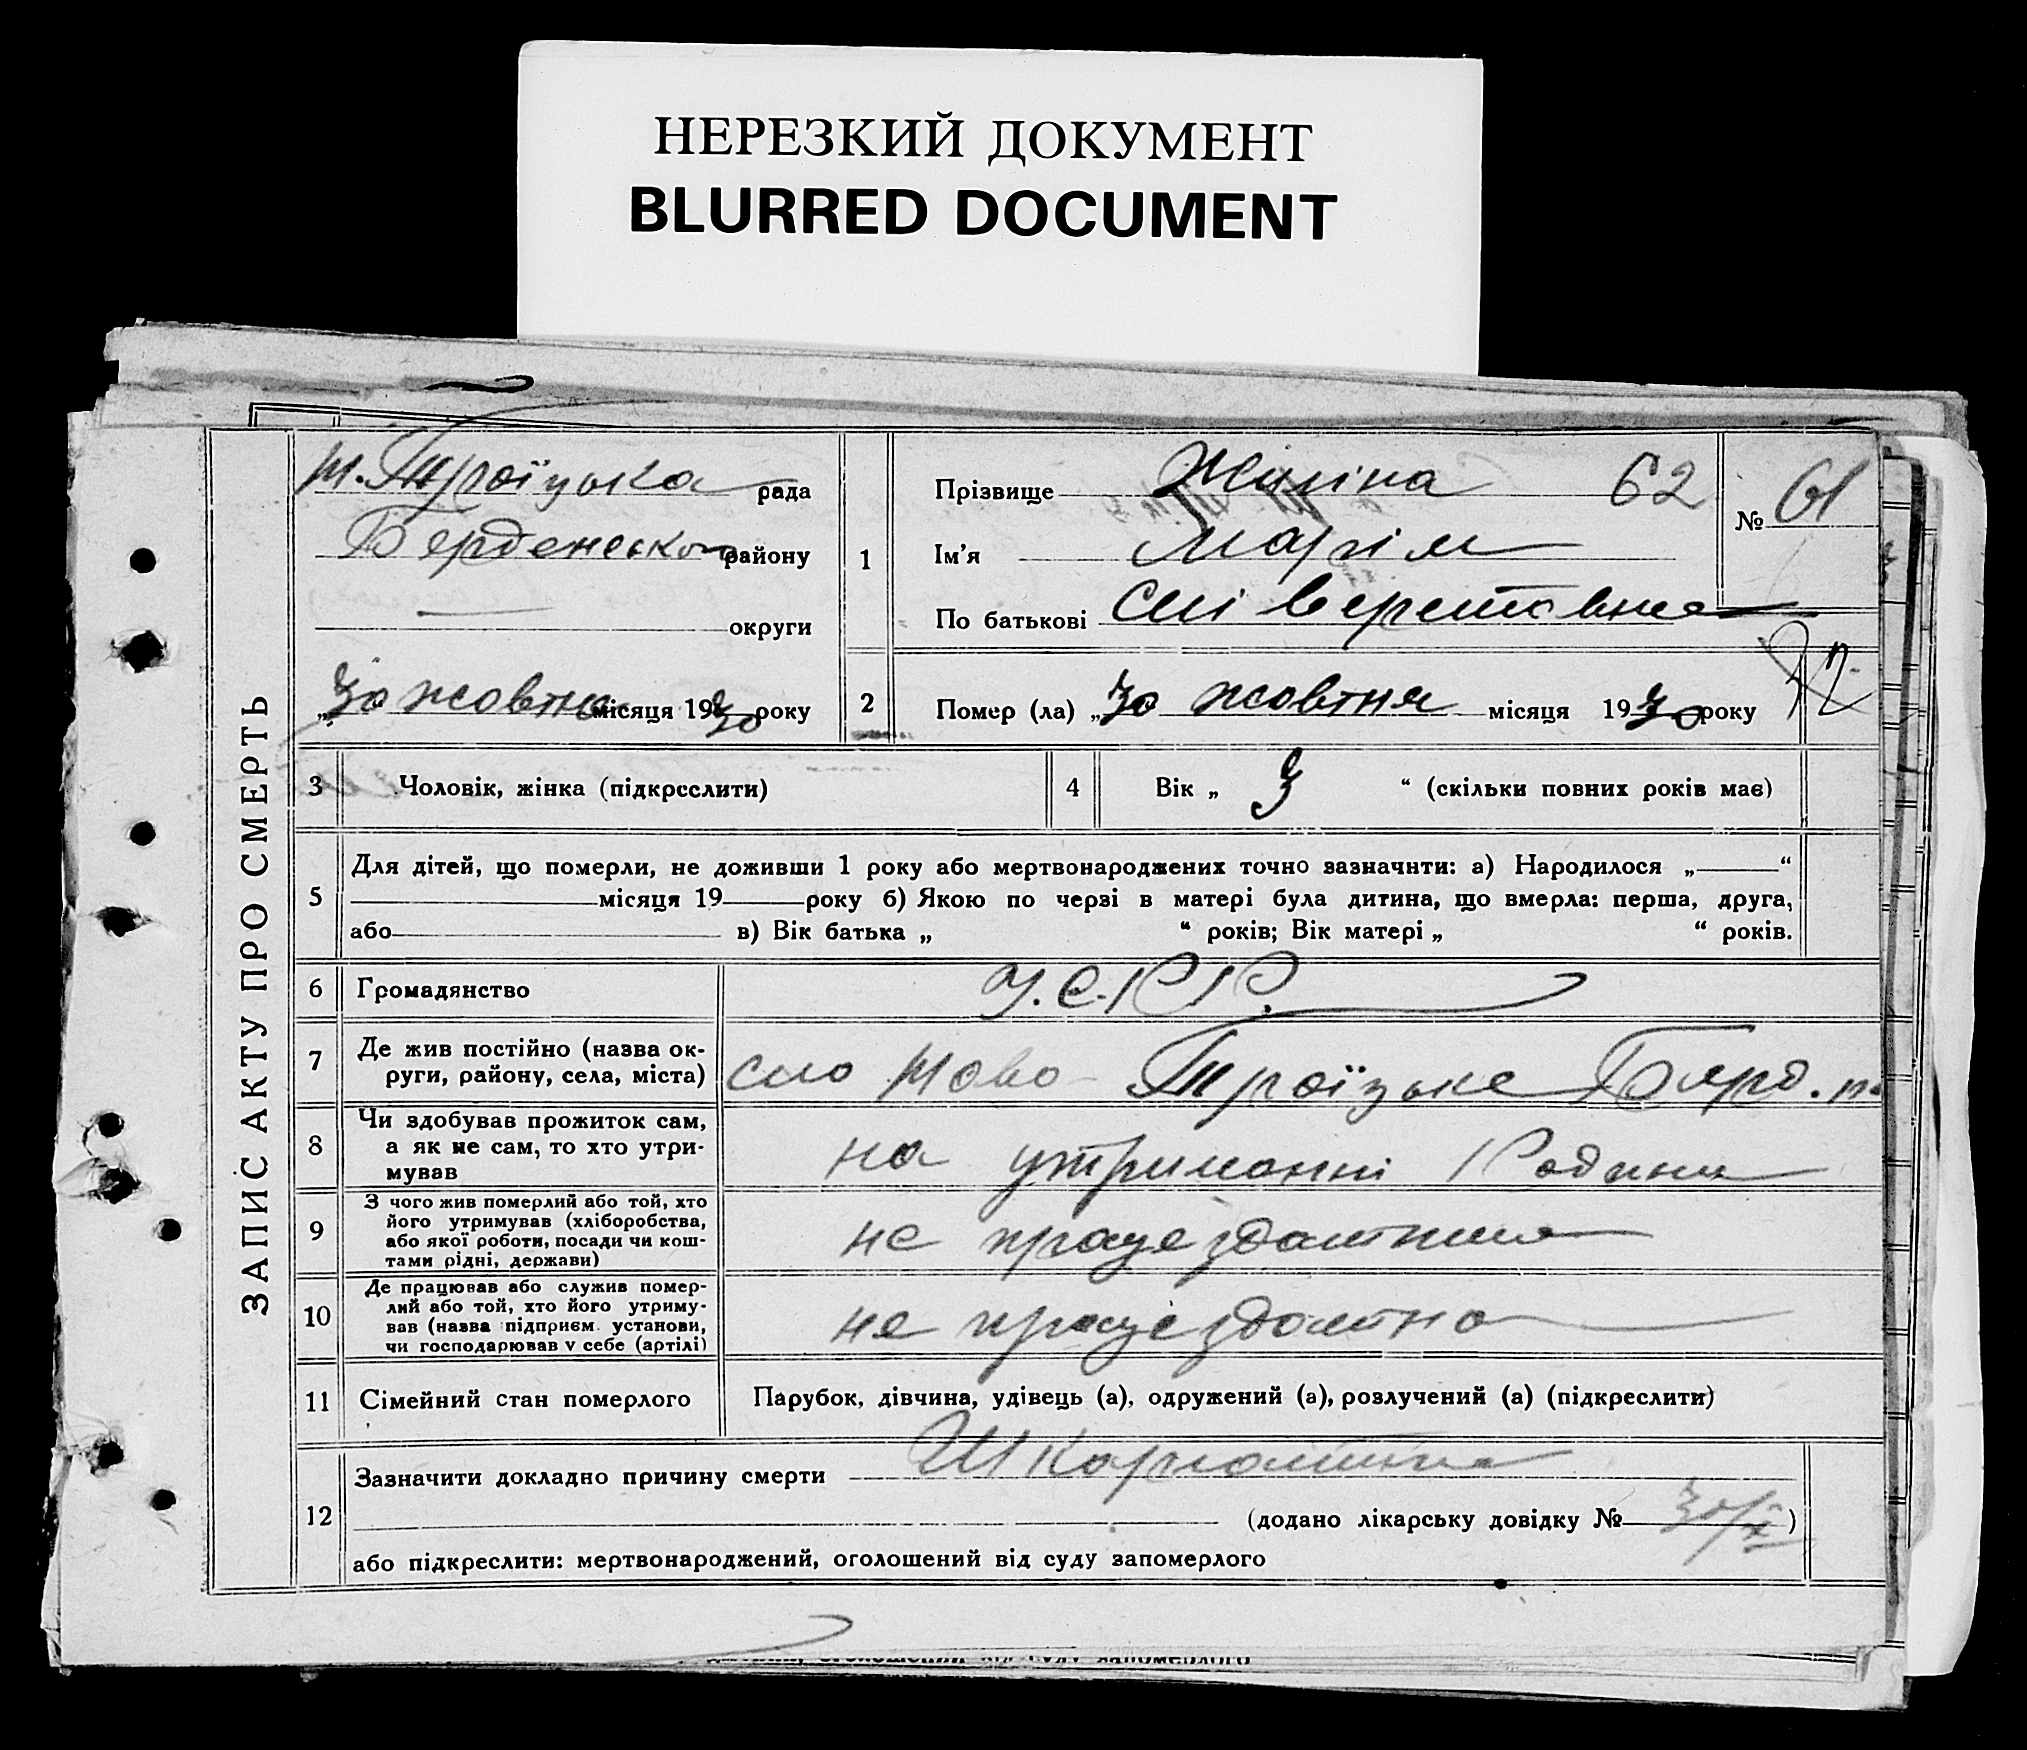 НЕРЕЗКИЙ ДОКУМЕНТ
BLURRED DOCUMENT
ЗАПИС АКТУ ПРО СМЕРТЬ
Н. Троїцька рада
району
округи
„30 жовтня місяця 1930 року
1
Прізвище 62
Ім'я Марія
По батькові
№ 61
2
Помер (ла) „30 жовтня місяця 1930 року
3 Чоловік, жінка (підкреслити)
4 Вік „ 3 “ (скільки повних років має)
5
Для дітей, що померли, не доживши 1 року або мертвонароджених точно зазначити: а) Народилося „ “
місяця 19 року б) Якою по черзі в матері була дитина, що вмерла: перша, друга,
або в) Вік батька „ “ років; Вік матері „ “ років.
6 Громадянство У.С.Р.Р.
7 Де жив постійно (назва ок-
руги, району, села, міста) село Ново-Троїцьке Бярд. р.
8 Чи здобував прожиток сам,
а як не сам, то хто утри-
мував
на утриманні Родини
9 З чого жив померлий або той, хто
його утримував (хліборобства,
або якої роботи, посади чи кош-
тами рідні, держави)
не працездатна
10 Де працював або служив помер-
лий або той, хто його утриму-
вав (назва підприєм. установи,
чи господарював у себе (артілі)
не працездатна
11 Сімейний стан померлого Парубок, дівчина, удівець (а), одружений (а), розлучений (а) (підкреслити)
12
Зазначити докладно причину смерти Шкарлатина
(додано лікарську довідку № 30/X)
або підкреслити: мертвонароджений, оголошений від суду запомерлого
оголошений від суду запомерлого